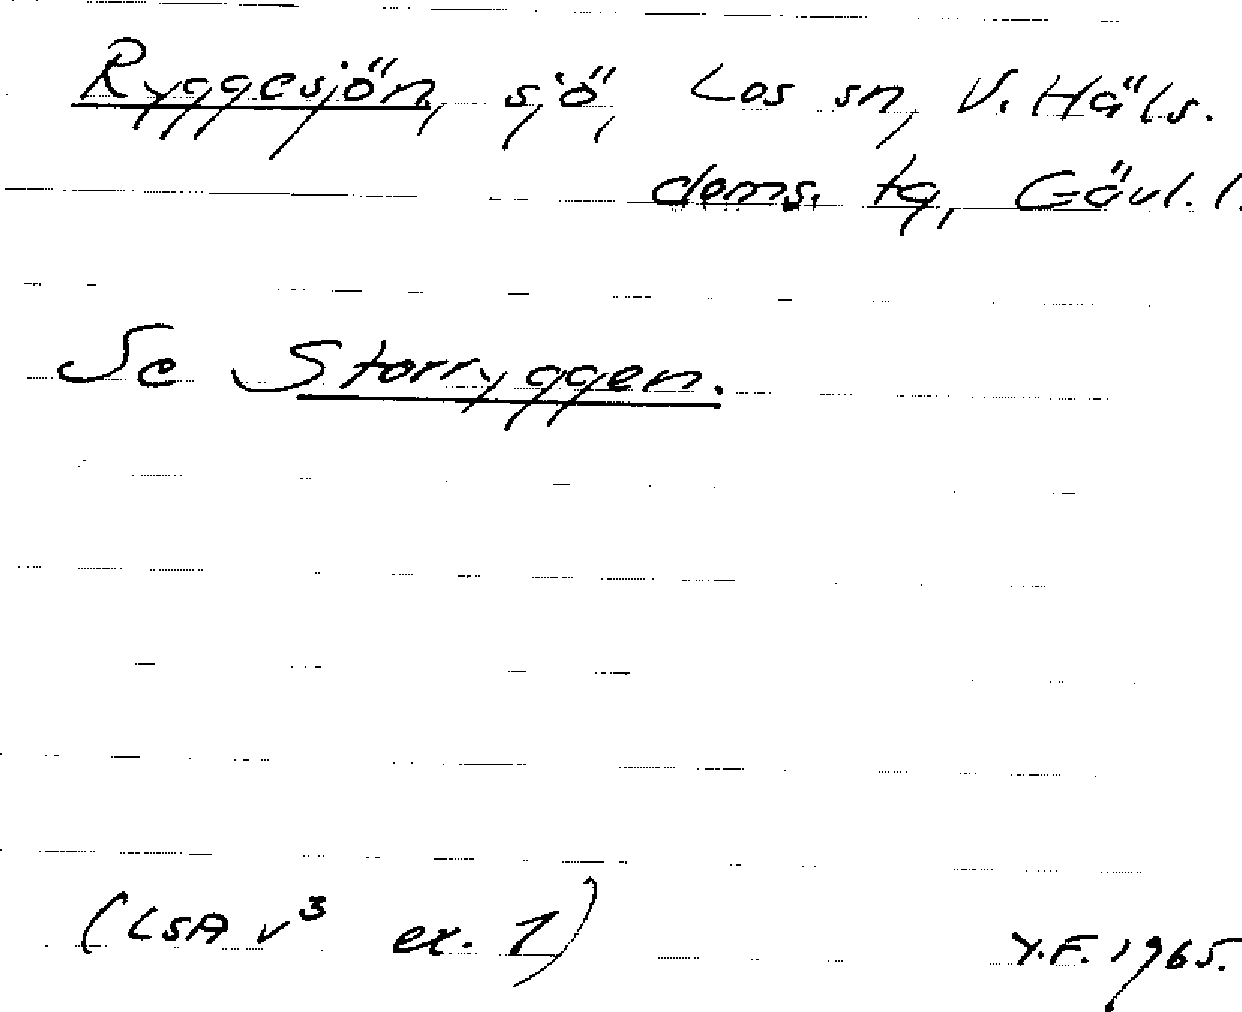 Ryggesjön, sjö, Los sn, V. Häls.
doms. tg, Gävl. l.
Se Storryggen.
(LSA v³ ex. 1) Y.F. 1965.